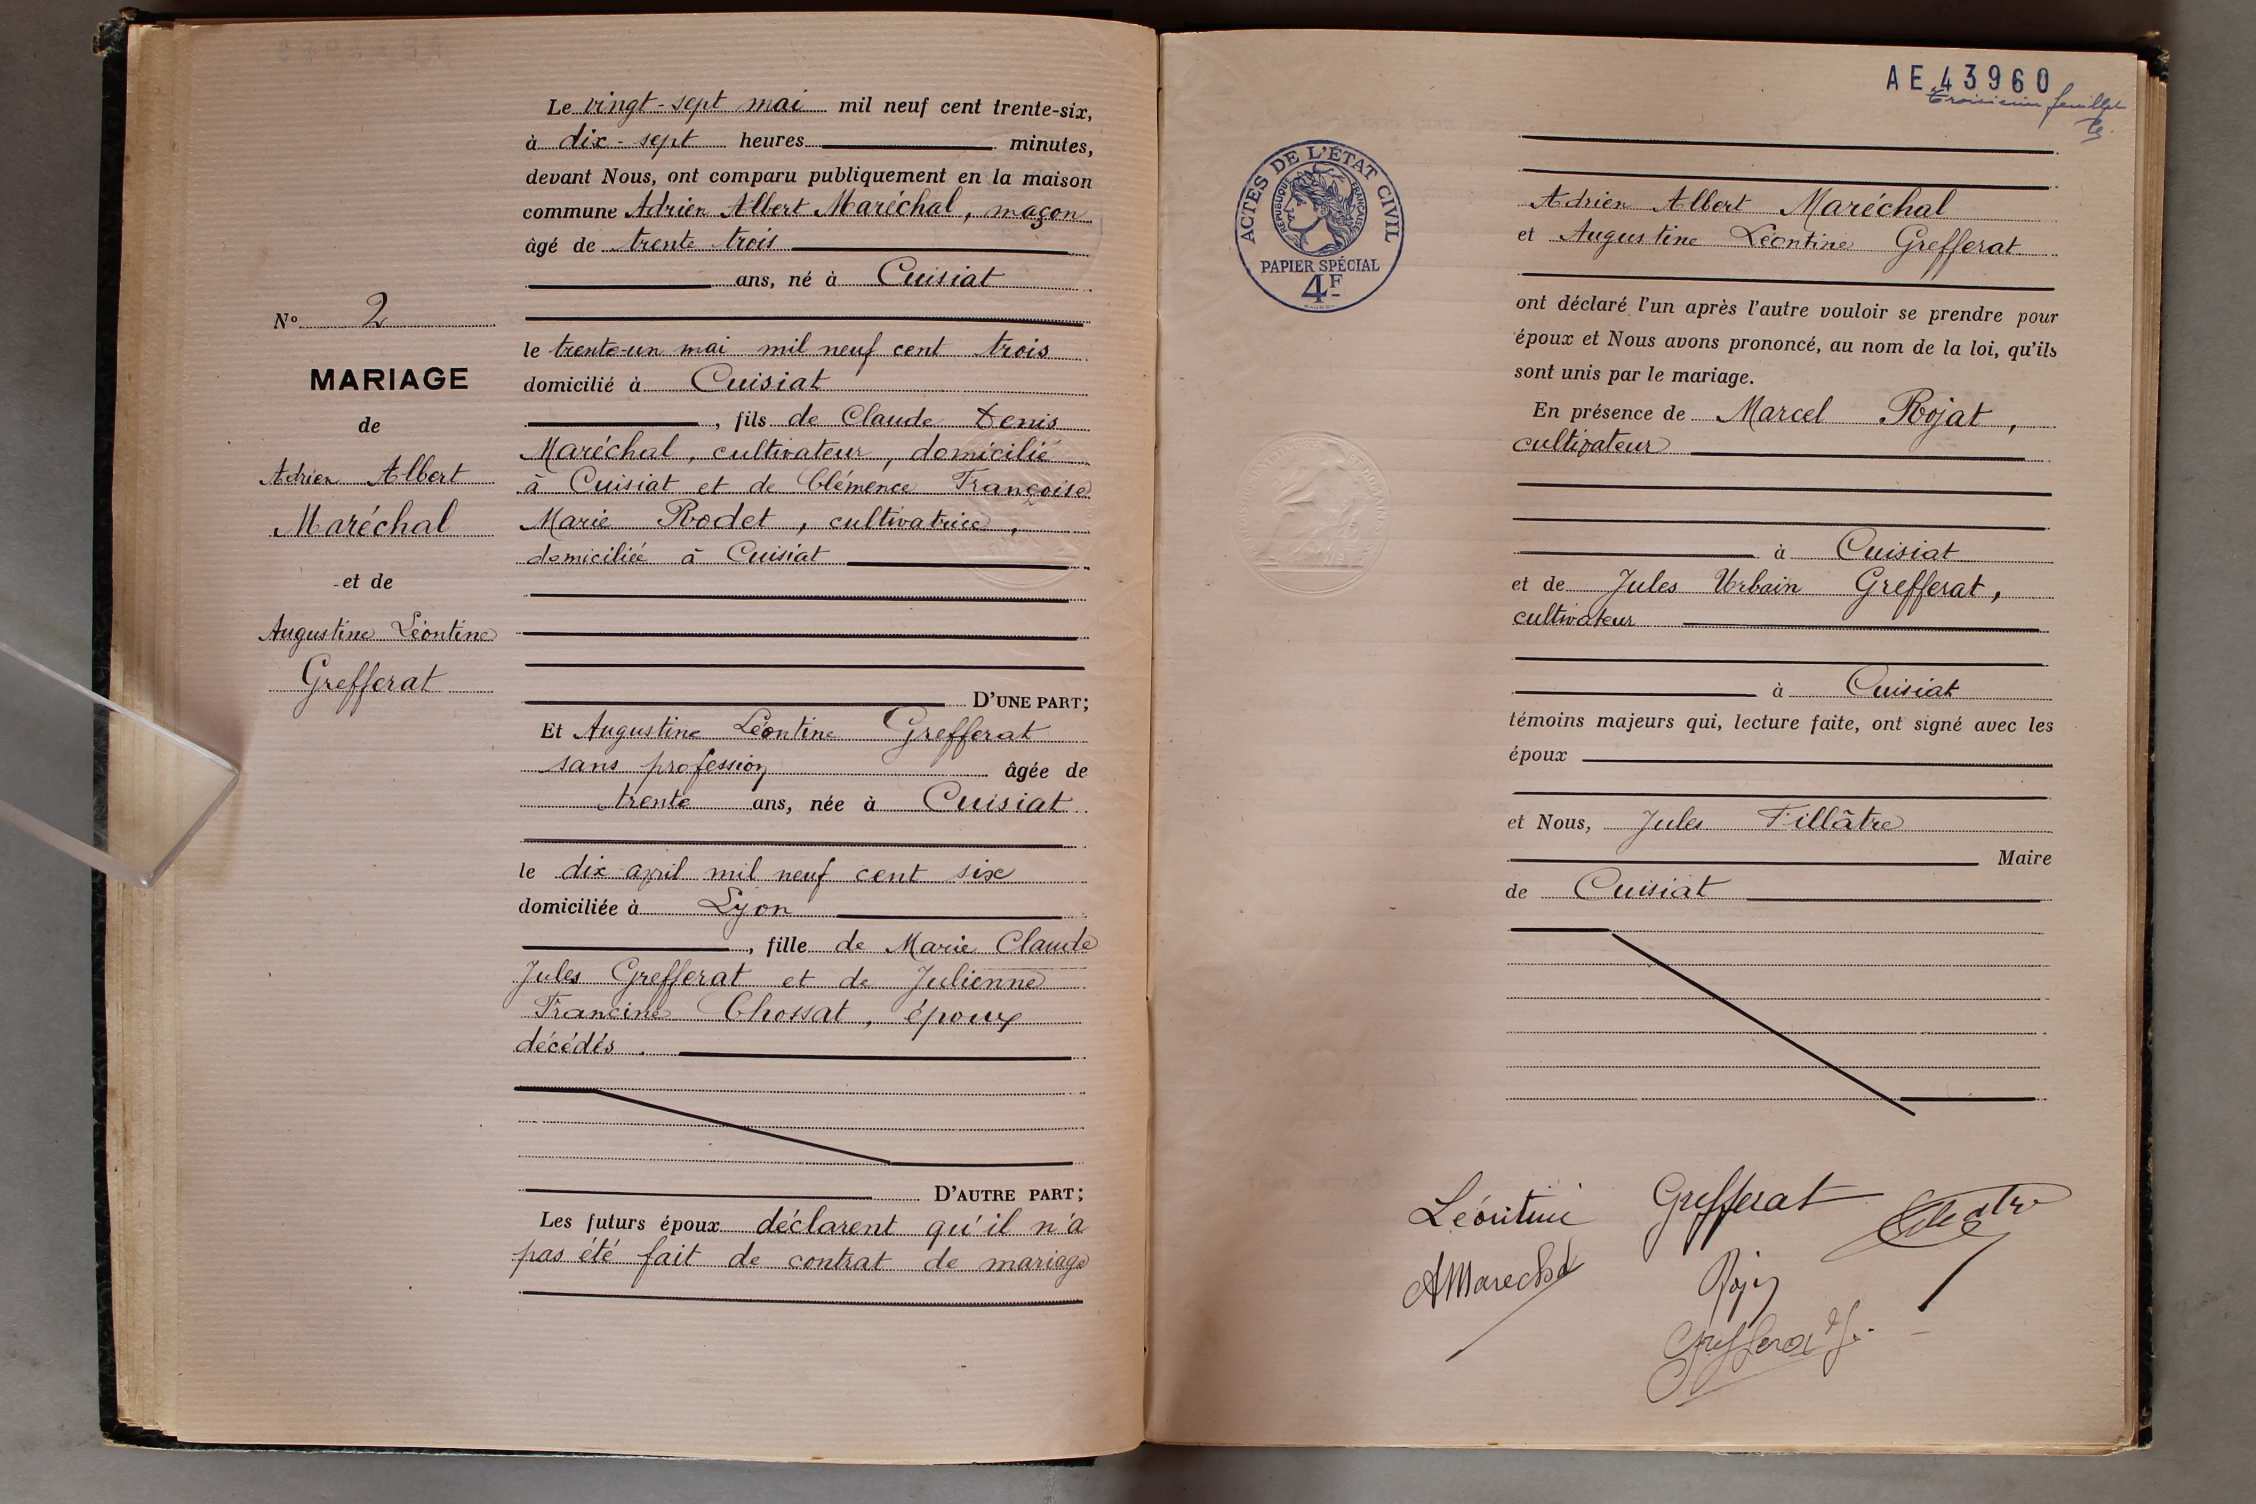 Le vingt-sept mai mil neuf cent trente-six,
à dix-sept heures minutes,
devant Nous, ont comparu publiquement en la maison
commune Adrien Albert Maréchal, maçon
âgé de trente trois
ans, né à Cuisiat
le trente-un mai mil neuf cent trois
domicilié à Cuisiat
, fils de Claude Denis
Maréchal, cultivateur, domicilié
à Cuisiat et de Clémence Françoise
Marie Rodet, cultivatrice,
domiciliée à Cuisiat
D'UNE PART;
Et Augustine Léontine Grefferat
sans profession âgée de
trente ans, née à Cuisiat
le dix april mil neuf cent six
domiciliée à Lyon
, fille de Marie Claude
Jules Grefferat et de Julienne
Francine Chossat, époux
décédés.
D'AUTRE PART;
Les futurs époux déclarent qu'il n'a
pas été fait de contrat de mariage
No 2
MARIAGE
de
Adrien Albert
Maréchal
et de
Augustine Léontine
Grefferat
AE 43960
troisième feuillet
ACTES DE L'ÉTAT CIVIL
RÉPUBLIQUE FRANÇAISE
PAPIER SPÉCIAL
4F
Adrien Albert Maréchal
et Augustine Léontine Grefferat
ont déclaré l'un après l'autre vouloir se prendre pour
époux et Nous avons prononcé, au nom de la loi, qu'ils
sont unis par le mariage.
En présence de Marcel Rojat,
cultivateur
à Cuisiat
et de Jules Urbain Grefferat,
cultivateur
à Cuisiat
témoins majeurs qui, lecture faite, ont signé avec les
époux
et Nous, Jules Fillâtre
Maire
de Cuisiat
Léontine Grefferat
AMarechal
Grefferat